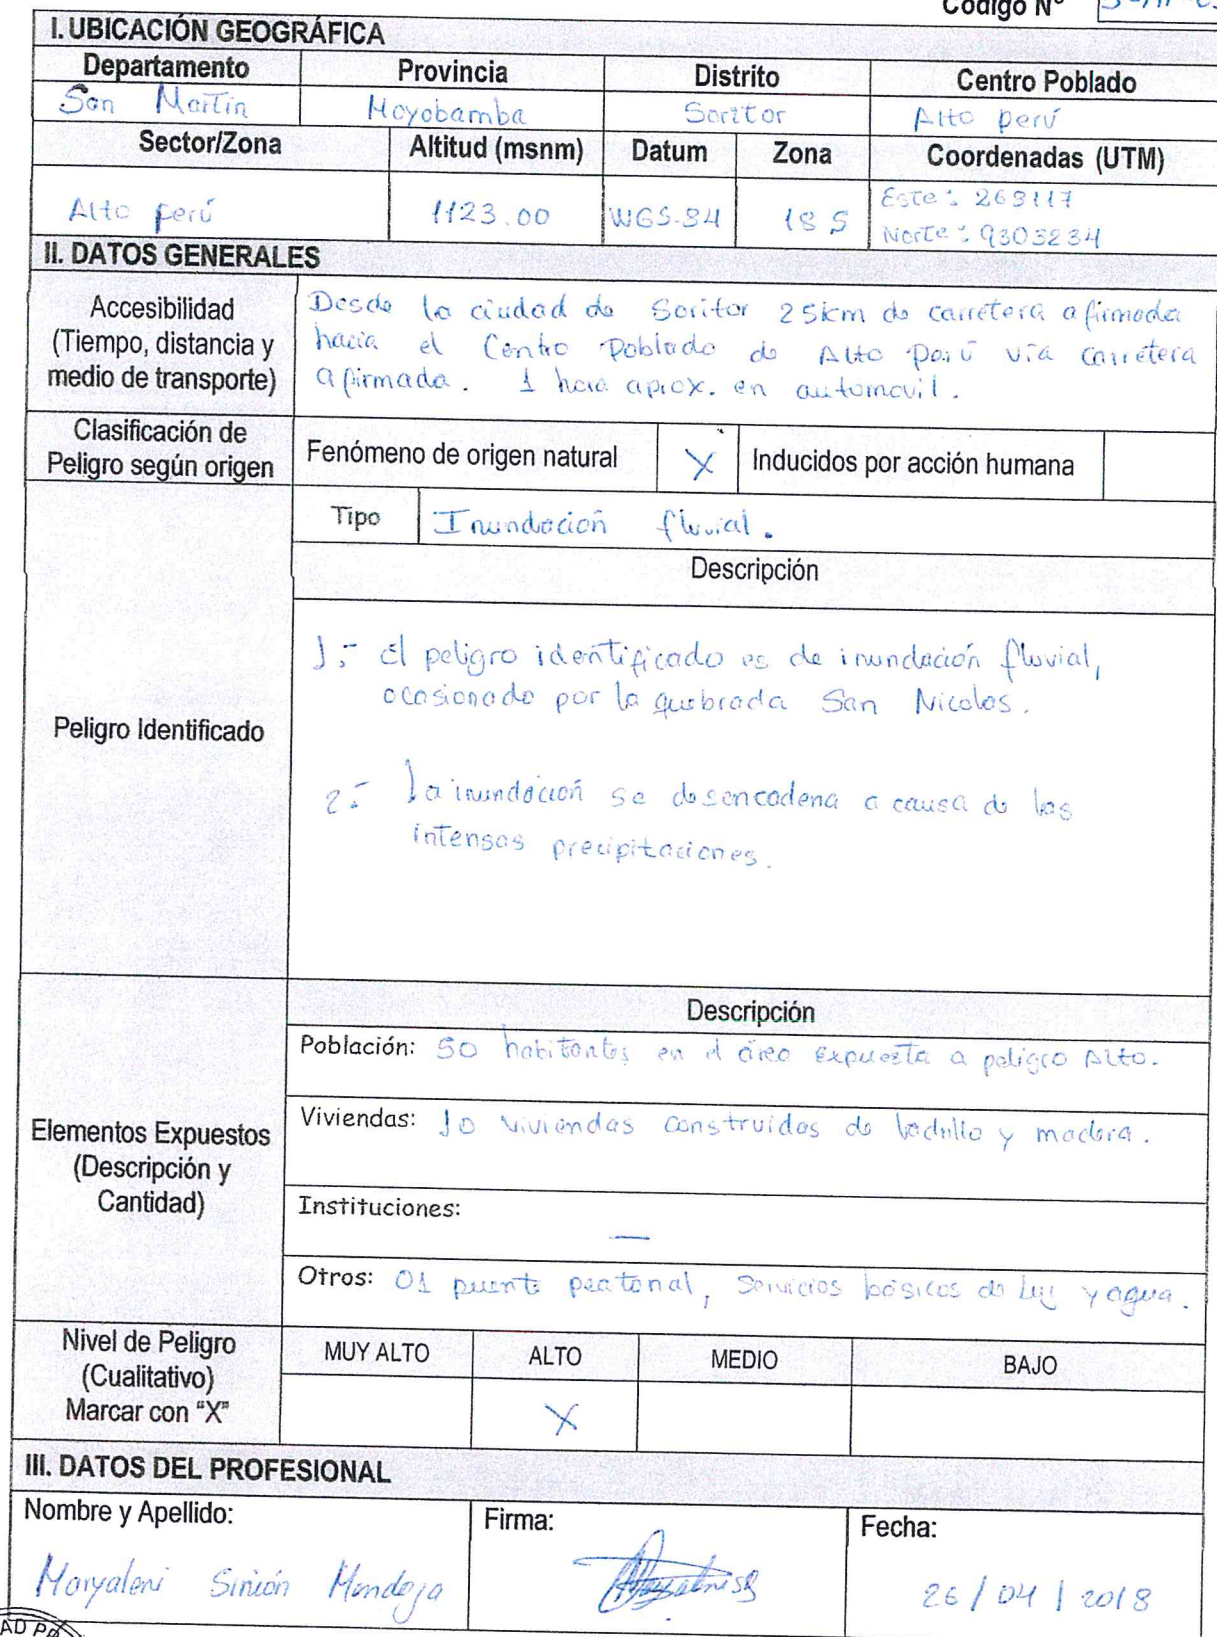 Código N°
I. UBICACIÓN GEOGRÁFICA
Departamento Provincia Distrito Centro Poblado
San Martín Moyobamba Soritor Alto perú
Sector/Zona Altitud (msnm) Datum Zona Coordenadas (UTM)
Alto perú 1123.00 WGS-84 18 S Este: 269117
Norte: 9303234
II. DATOS GENERALES
Accesibilidad
(Tiempo, distancia y
medio de transporte)
Desde la ciudad de Soritor 25km de carretera afirmada
hacia el Centro Poblado de Alto Perú vía carretera
afirmada. 1 hora aprox. en automovil.
Clasificación de
Peligro según origen
Fenómeno de origen natural X Inducidos por acción humana
Peligro Identificado
Tipo Inundación fluvial.
Descripción
1.- El peligro identificado es de inundación fluvial,
ocasionado por la quebrada San Nicolas.
2.- La inundación se desencadena a causa de las
intensas precipitaciones.
Elementos Expuestos
(Descripción y
Cantidad)
Descripción
Población: 50 habitantes en el área expuesta a peligro Alto.
Viviendas: 10 viviendas construidas de ladrillo y madera.
Instituciones: —
Otros: 01 puente peatonal, Servicios básicos de luz y agua.
Nivel de Peligro
(Cualitativo)
Marcar con "X"
MUY ALTO ALTO MEDIO BAJO
X
III. DATOS DEL PROFESIONAL
Nombre y Apellido: Firma: Fecha:
Maryaleni Sirión Mendoza 26/04/2018